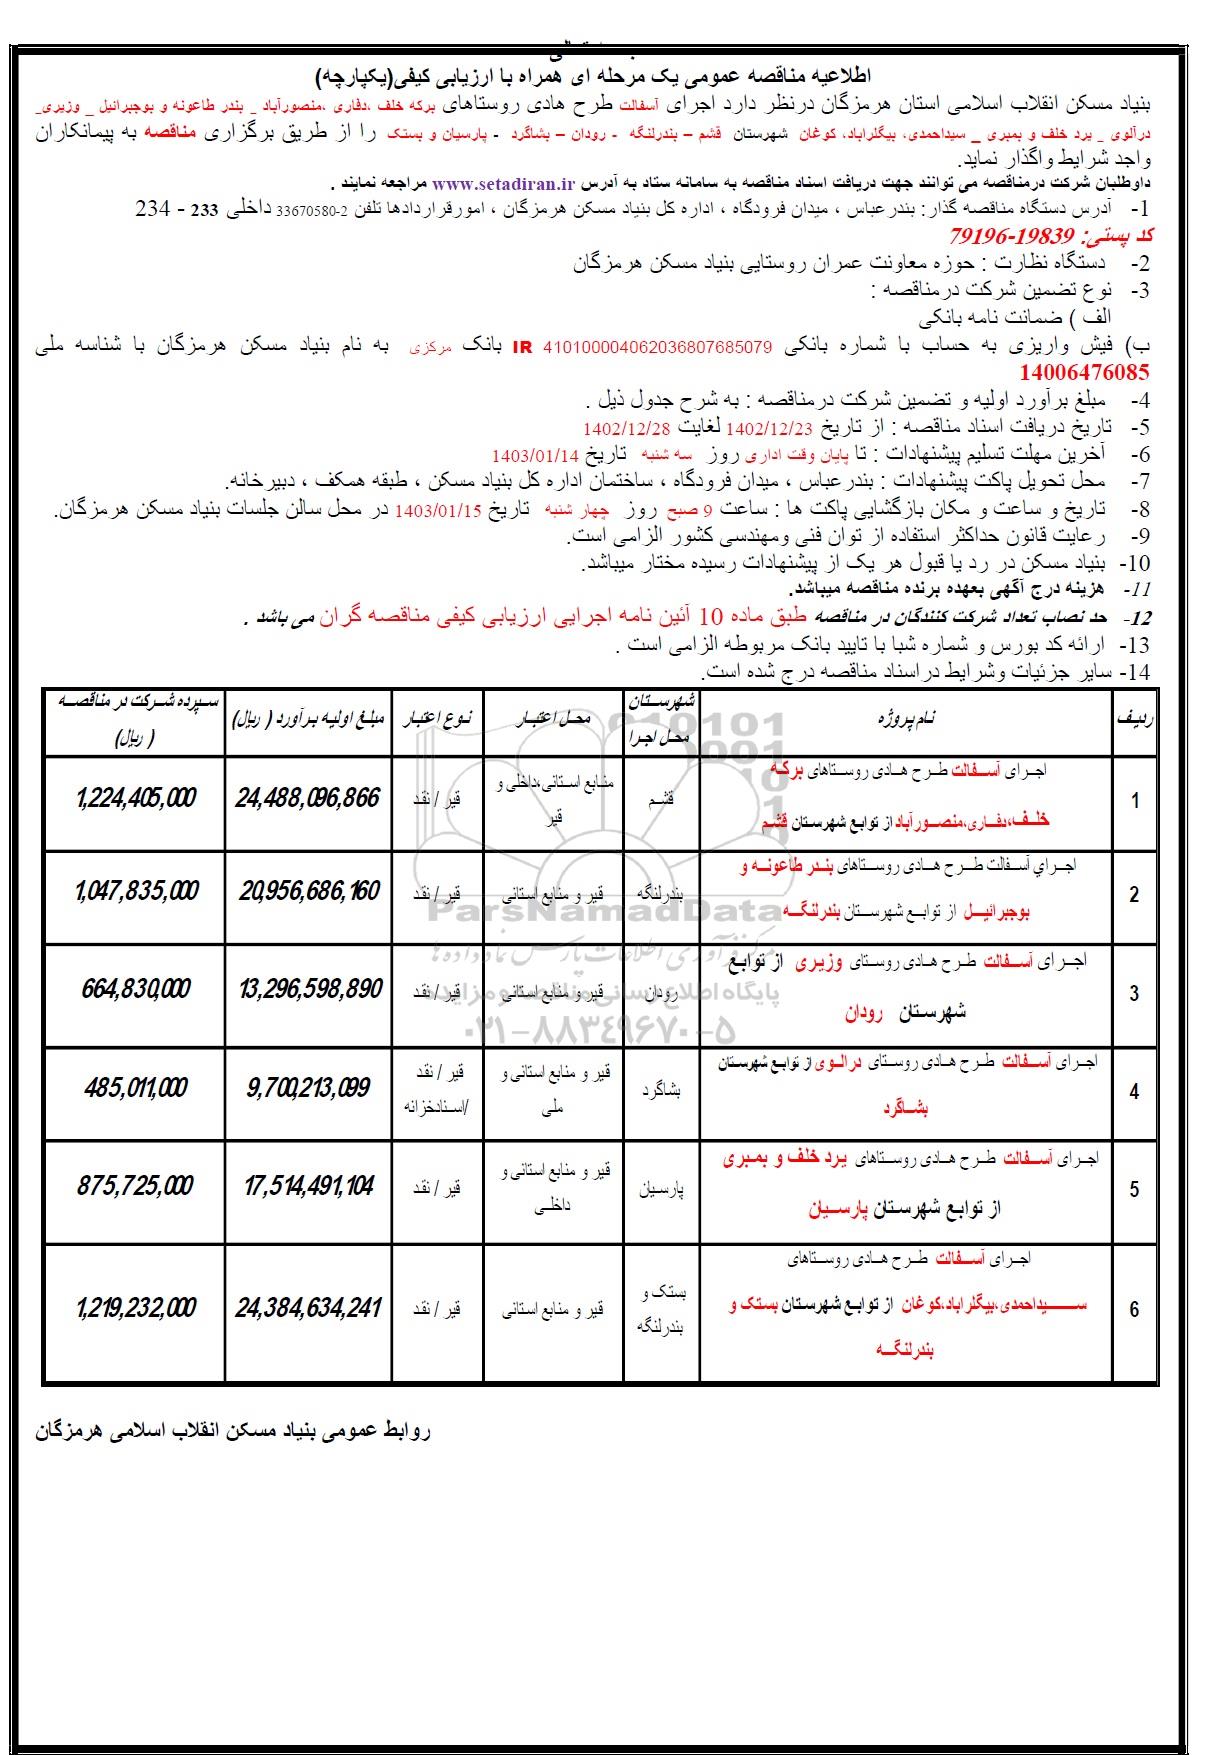 اطلاعیه مناقصه عمومی یک مرحله ای همراه با ارزیابی کیفی(یکپارچه)
بنیاد مسکن انقلاب اسلامی استان هرمزگان درنظر دارد اجرای آسفالت طرح هادی روستاهای برکه خلف ،دفاری ،منصورآباد _ بندر طاعونه و بوجبرانیل _ وزیری_
درآلوی _ یرد خلف و بمبری _ سیداحمدی، بیگلراباد، کوغان شهرستان قشم – بندرلنگه - رودان – بشاگرد - پارسیان و بستک را از طریق برگزاری مناقصه به پیمانکاران
واجد شرایط واگذار نماید.
داوطلبان شرکت درمناقصه می توانند جهت دریافت اسناد مناقصه به سامانه ستاد به آدرس www.setadiran.ir مراجعه نمایند .
1- آدرس دستگاه مناقصه گذار: بندرعباس ، میدان فرودگاه ، اداره کل بنیاد مسکن هرمزگان ، امورقراردادها تلفن 2-33670580 داخلی 233 - 234
کد پستی: 19839-79196
2- دستگاه نظارت : حوزه معاونت عمران روستایی بنیاد مسکن هرمزگان
3- نوع تضمین شرکت درمناقصه :
الف ) ضمانت نامه بانکی
ب) فیش واریزی به حساب با شماره بانکی IR 410100004062036807685079 بانک مرکزی به نام بنیاد مسکن هرمزگان با شناسه ملی
14006476085
4- مبلغ برآورد اولیه و تضمین شرکت درمناقصه : به شرح جدول ذیل .
5- تاریخ دریافت اسناد مناقصه : از تاریخ 1402/12/23 لغایت 1402/12/28
6- آخرین مهلت تسلیم پیشنهادات : تا پایان وقت اداری روز سه شنبه تاریخ 1403/01/14
7- محل تحویل پاکت پیشنهادات : بندرعباس ، میدان فرودگاه ، ساختمان اداره کل بنیاد مسکن ، طبقه همکف ، دبیرخانه.
8- تاریخ و ساعت و مکان بازگشایی پاکت ها : ساعت 9 صبح روز چهار شنبه تاریخ 1403/01/15 در محل سالن جلسات بنیاد مسکن هرمزگان.
9- رعایت قانون حداکثر استفاده از توان فنی ومهندسی کشور الزامی است.
10- بنیاد مسکن در رد یا قبول هر یک از پیشنهادات رسیده مختار میباشد.
11- هزینه درج آگهی بعهده برنده مناقصه میباشد.
12- حد نصاب تعداد شرکت کنندگان در مناقصه طبق ماده 10 آئین نامه اجرایی ارزیابی کیفی مناقصه گران می باشد .
13- ارائه کد بورس و شماره شبا با تایید بانک مربوطه الزامی است .
14- سایر جزئیات وشرایط دراسناد مناقصه درج شده است.
ردیف نام پروژه شهرستان محل اجرا محل اعتبار نوع اعتبار مبلغ اولیه برآورد ( ریال) سپرده شرکت در مناقصه ( ریال)
1 اجرای آسفالت طرح هادی روستاهای برکه خلف،دفاری،منصورآباد از توابع شهرستان قشم قشم منابع استانی،داخلی و قیر قیر / نقد 24,488,096,866 1,224,405,000
2 اجراي آسفالت طرح هادی روستاهای بندر طاعونه و بوجبرائیل از توابع شهرستان بندرلنگه بندرلنگه قیر و منابع استانی قیر / نقد 20,956,686,160 1,047,835,000
3 اجرای آسفالت طرح هادی روستای وزیری از توابع شهرستان رودان رودان قیر و منابع استانی قیر / نقد 13,296,598,890 664,830,000
4 اجرای آسفالت طرح هادی روستای درالوی از توابع شهرستان بشاگرد بشاگرد قیر و منابع استانی و ملی قیر / نقد /اسنادخزانه 9,700,213,099 485,011,000
5 اجرای آسفالت طرح هادی روستاهای یرد خلف و بمبری از توابع شهرستان پارسیان پارسیان قیر و منابع استانی و داخلی قیر / نقد 17,514,491,104 875,725,000
6 اجرای آسفالت طرح هادی روستاهای سیداحمدی،بیگلراباد،کوغان از توابع شهرستان بستک و بندرلنگه بستک و بندرلنگه قیر و منابع استانی قیر / نقد 24,384,634,241 1,219,232,000
ParsNamadData
مرکز فرآوری اطلاعات پارس نماد داده ها
پایگاه اطلاع رسانی مناقصه و مزایده
۰۲۱-۸۸۳۴۹۶۷۰-۵
روابط عمومی بنیاد مسکن انقلاب اسلامی هرمزگان